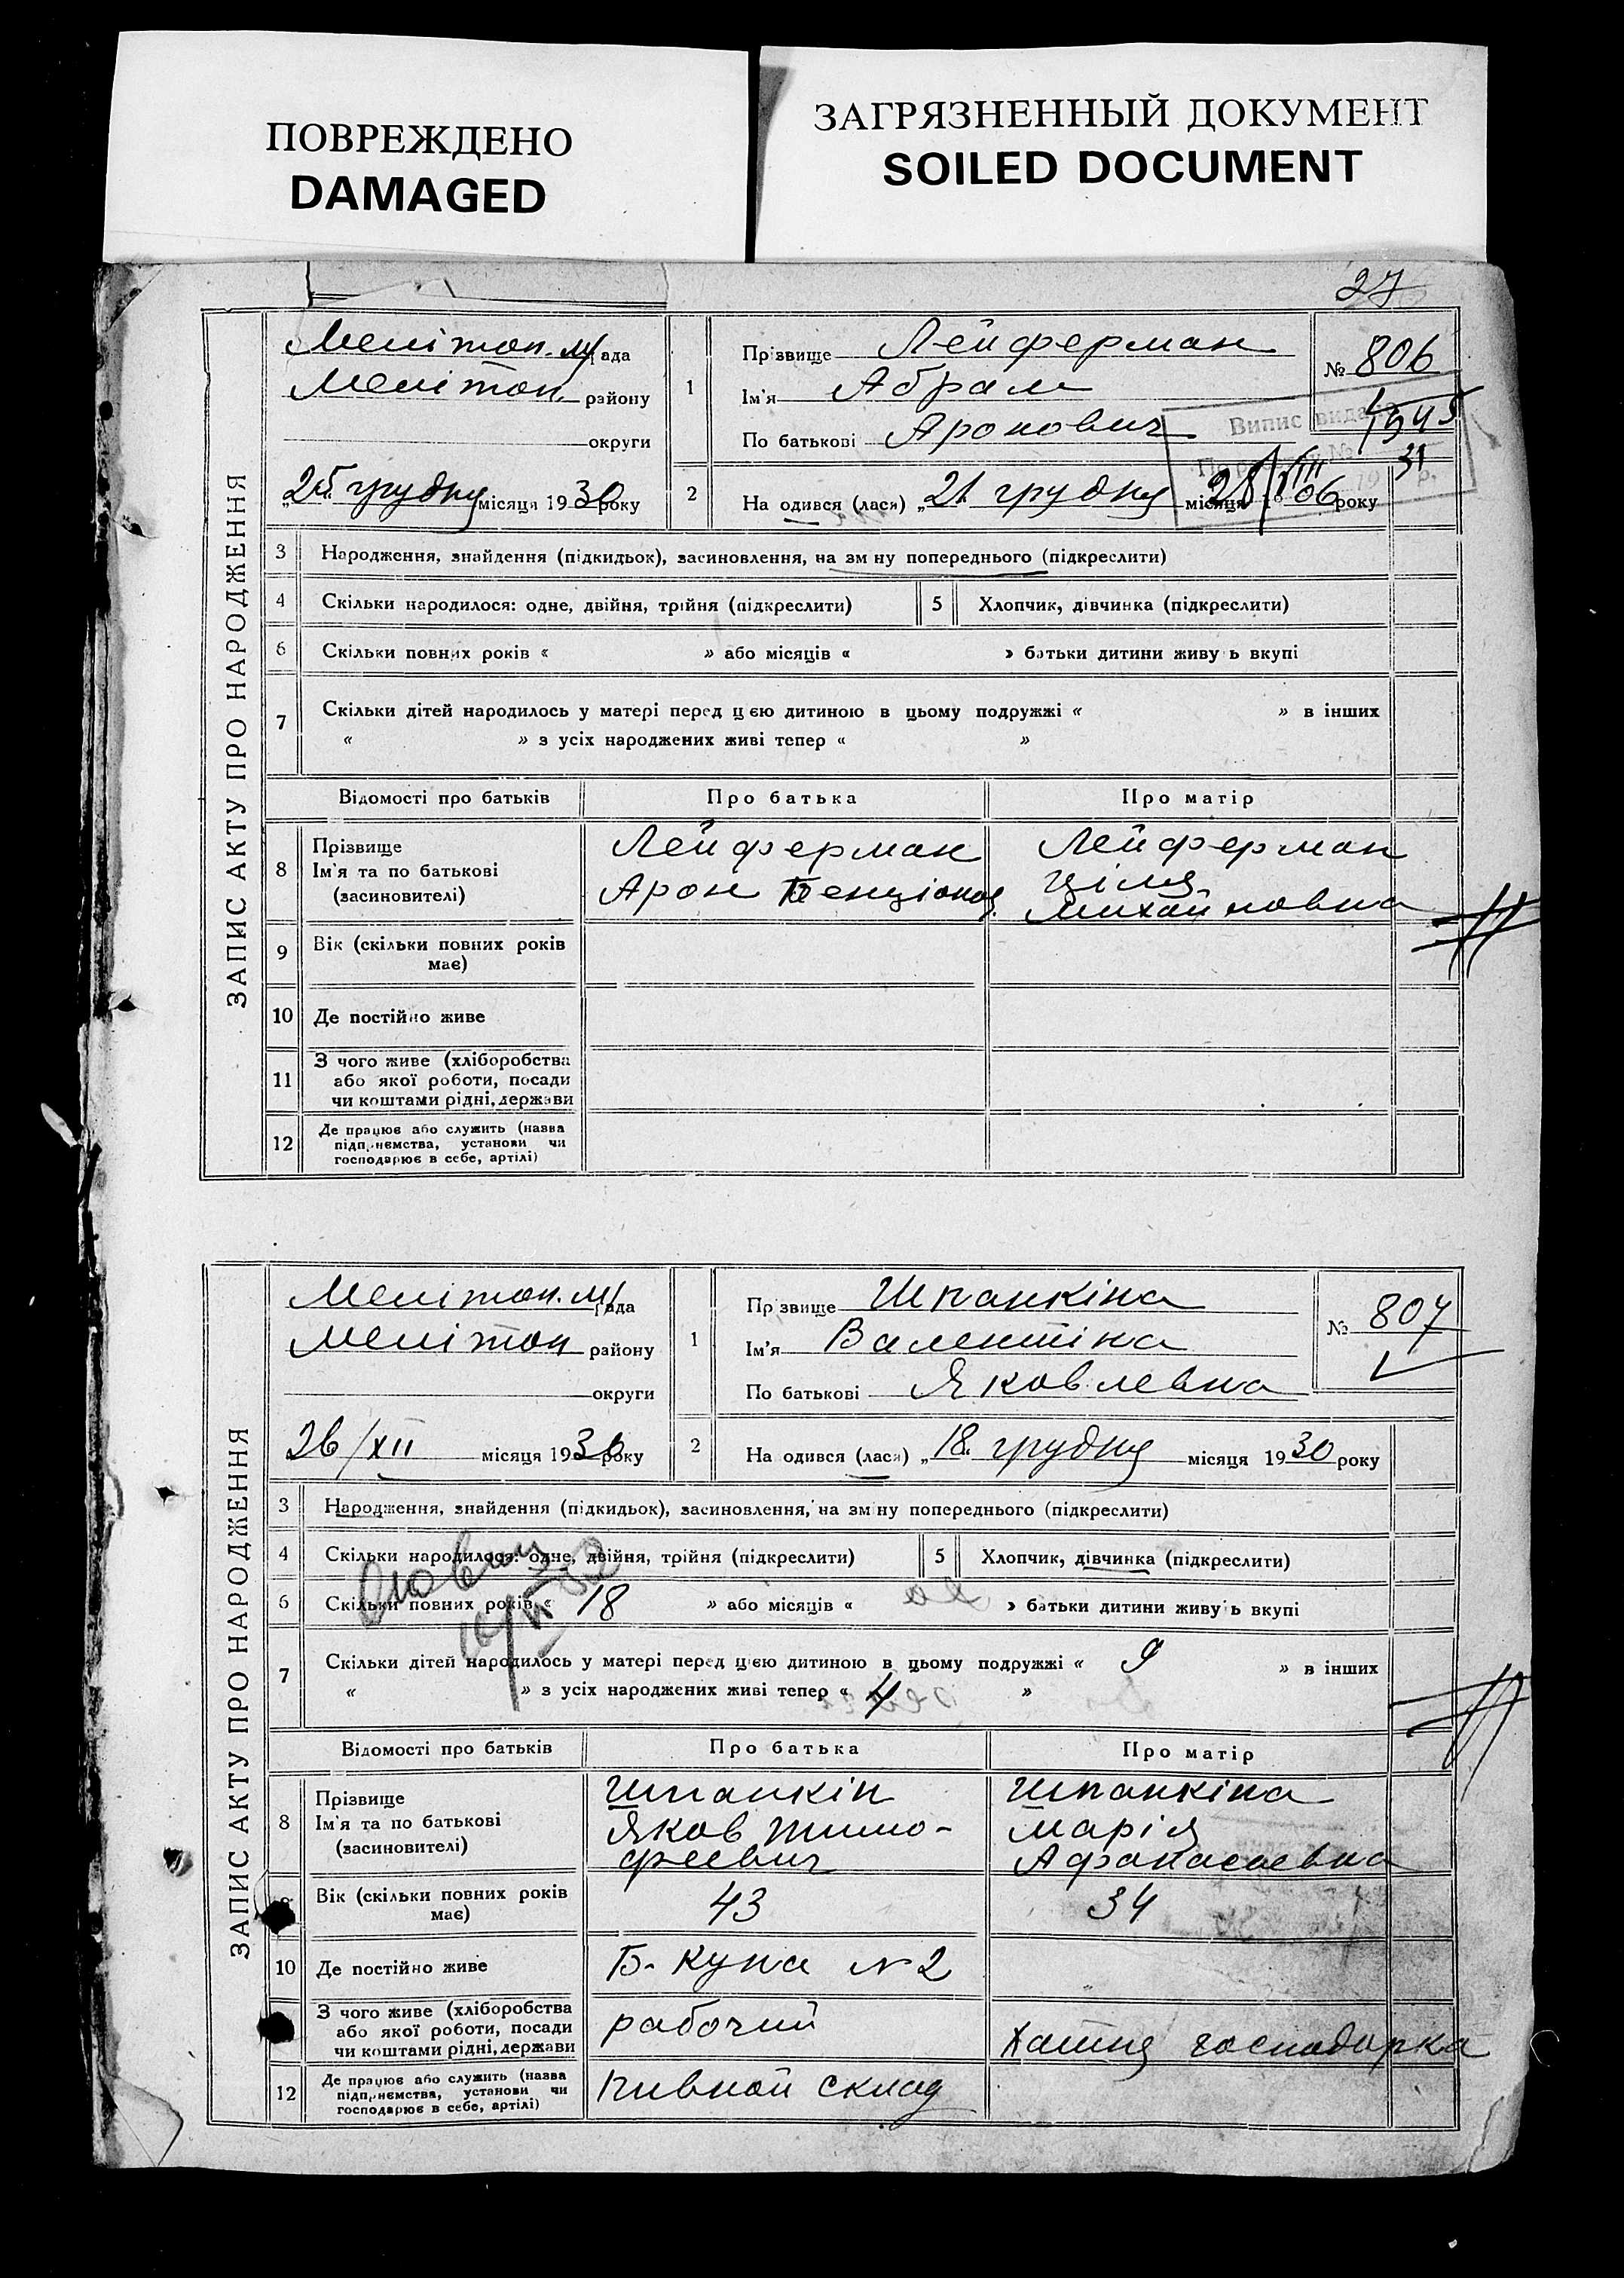 ПОВРЕЖДЕНО
DAMAGED
ЗАГРЯЗНЕННЫЙ ДОКУМЕНТ
SOILED DOCUMENT
27
ЗАПИС АКТУ ПРО НАРОДЖЕННЯ
Мелітоп. м/рада
Мелітоп. району
округи
„25 грудня місяця 1930 року
1
Прізвище Лейферман
Ім'я Абрам
По батькові Аронович
№ 806
1945
Випис видано
31
28/VIII
2 На одився (лася) „21 грудня місяця 1906 року
3 Народження, знайдення (підкидьок), засиновлення, на зм ну попереднього (підкреслити)
4 Скільки народилося: одне, двійня, трійня (підкреслити) 5 Хлопчик, дівчинка (підкреслити)
6 Скільки повних років « » або місяців « » батьки дитини живу ь вкупі
7 Скільки дітей народилось у матері перед цією дитиною в цьому подружжі « » в інших
« » з усіх народжених живі тепер « »
Відомості про батьків Про батька Про матір
8 Прізвище
Ім'я та по батькові
(засиновителі)
Лейферман
Арон Бенціонов.
Лейферман
Ціля
Михайловна
9 Вік (скільки повних років
має)
10 Де постійно живе
11 З чого живе (хліборобства
або якої роботи, посади
чи коштами рідні, держави
12 Де працює або служить (назва
підприємства, установи чи
господарює в себе, артілі)
ЗАПИС АКТУ ПРО НАРОДЖЕННЯ
Мелітоп. м/рада
Мелітоп району
округи
26/XII місяця 1930 року
1
Пр звище Шпанкіна
Ім'я Валентіна
По батькові Яковлевна
№ 807
2 На одився (лася) „18 грудня місяця 1930 року
3 Народження, знайдення (підкидьок), засиновлення, на зм ну попереднього (підкреслити)
4 Скільки народилося: одне, двійня, трійня (підкреслити) 5 Хлопчик, дівчинка (підкреслити)
6 Скільки повних років « 18 » або місяців « » батьки дитини живу ь вкупі
7 Скільки дітей народилось у матері перед цією дитиною в цьому подружжі « 9 » в інших
« » з усіх народжених живі тепер « 4 »
Відомості про батьків Про батька Про матір
8 Прізвище
Ім'я та по батькові
(засиновителі)
Шпанкін
Яков Тимо-
феевич
Шпанкіна
Марія
Афанасьевна
Вік (скільки повних років
має)
43
34
10 Де постійно живе
Б. Куна № 2
З чого живе (хліборобства
або якої роботи, посади
чи коштами рідні, держави
рабочий
Хатня господарка
12 Де працює або служить (назва
підприємства, установи чи
господарює в себе, артілі)
пивной склад